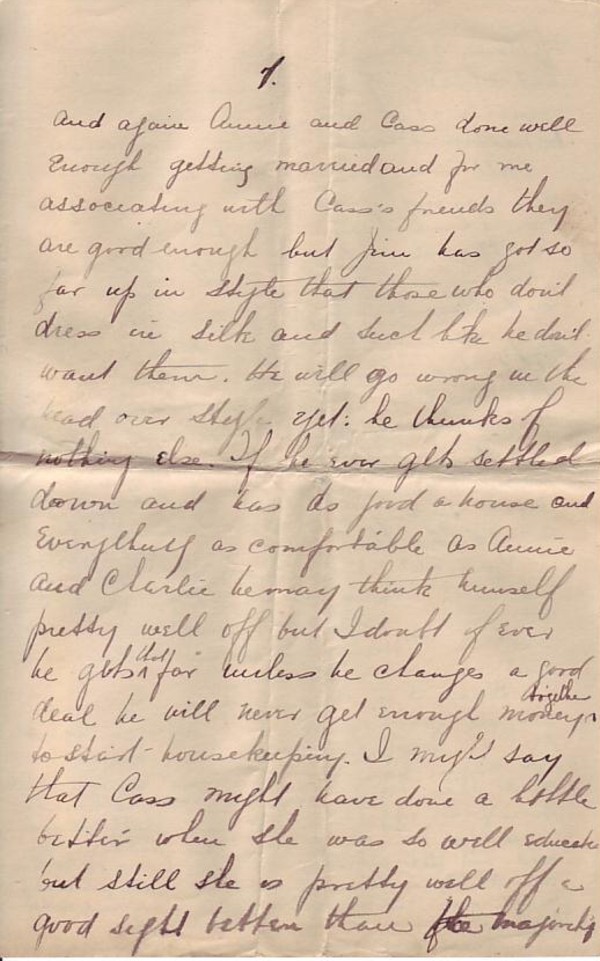 7.
and again Annie and Cass done well
enough getting married and for me
associating with Cass's friends they
are good enough but Jim has got so
far up in style that those who don't
dress in silk and such like he don't
want them. He will go wrong in the
head over style yet: he thinks of
nothing else. If he ever gets settled
down and has as good a house and
everything as comfortable as Annie
and Charlie he may think himself
pretty well off but I doubt if ever
he gets that far unless he changes a good
deal he will never get enough money together
to start housekeeping. I might say
that Cass might have done a little
better when she was so well educate
but still she is pretty well off a
good sight better than the majority